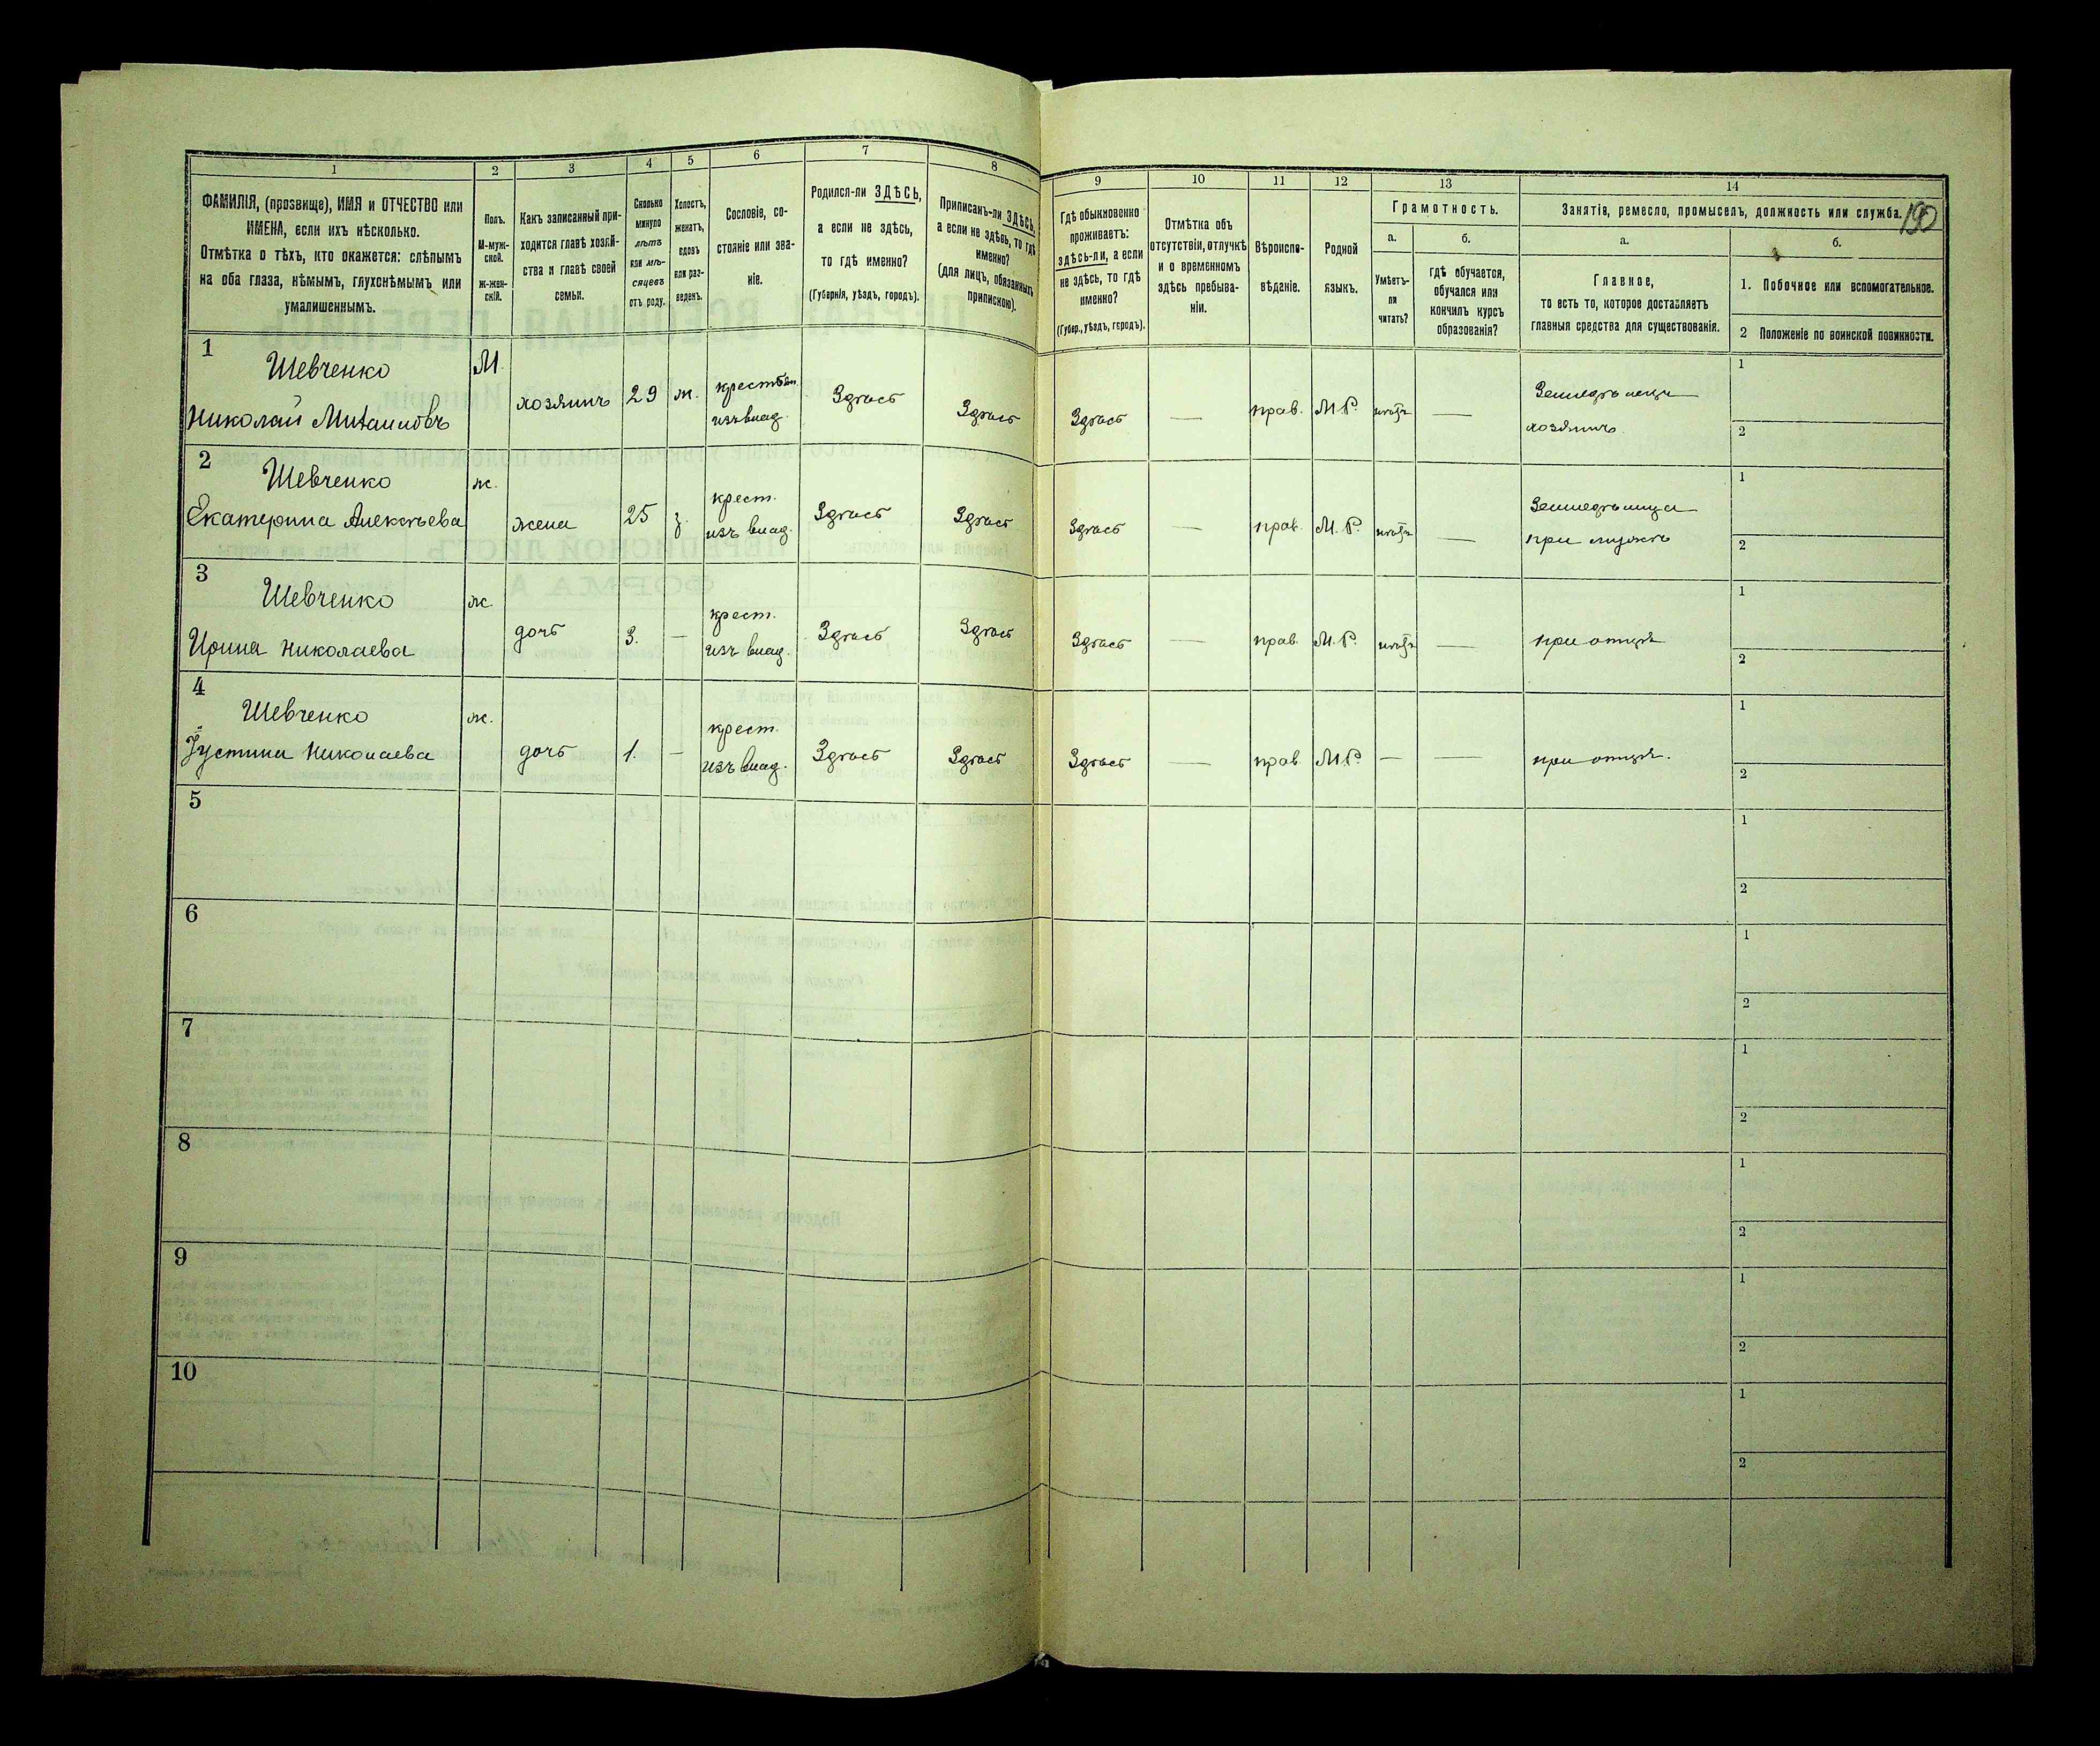 190
1 2 3 4 5 6 7 8 9 10 11 12 13 14
ФАМИЛІЯ, (прозвище), ИМЯ и ОТЧЕСТВО или
ИМЕНА, если ихъ нѣсколько.
Отмѣтка о тѣхъ, кто окажется: слѣпымъ
на оба глаза, нѣмымъ, глухонѣмымъ или
умалишеннымъ.
Полъ.
М-муж-
ской.
ж-жен-
скій.
Какъ записанный при-
ходится главѣ хозяй-
ства и главѣ своей
семьи.
Сколько
минуло
лѣтъ
или мѣ-
сяцевъ
отъ роду.
Холостъ,
женатъ,
вдовъ
или раз-
веденъ.
Сословіе, со-
стояніе или зва-
ніе.
Родился-ли ЗДѢСЬ,
а если не здѣсь,
то гдѣ именно?
(Губернія, уѣздъ, городъ).
Приписанъ-ли ЗДѢСЬ,
а если не здѣсь, то гдѣ
именно?
(для лицъ, обязанныхъ
припискою).
Гдѣ обыкновенно
проживаетъ:
здѣсь-ли, а если
не здѣсь, то гдѣ
именно?
(Губер., уѣздъ, городъ).
Отмѣтка объ
отсутствіи, отлучкѣ
и о временномъ
здѣсь пребыва-
ніи.
Вѣроиспо-
вѣданіе.
Родной
языкъ.
Грамотность.
а.
Умѣетъ-
ли
читать?
б.
гдѣ обучается,
обучался или
кончилъ курсъ
образованія?
Занятія, ремесло, промыселъ, должность или служба.
а.
Главное,
то есть то, которое доставляетъ
главныя средства для существованія.
б.
1. Побочное или вспомогательное.
2 Положеніе по воинской повинности.
1
Шевченко
Николай Михаиловъ
М.
хозяинъ
29
ж.
крестьян.
изъ влад.
Здѣсь
Здѣсь
Здѣсь
—
прав.
М.Р.
нѣтъ
—
Земледѣлецъ
хозяинъ
1
2
2
Шевченко
Екатерина Алексѣева
ж.
жена
25
з.
крест.
изъ влад.
Здѣсь
Здѣсь
Здѣсь
—
прав.
М.Р.
нѣтъ
—
Земледѣлица
при мужѣ
1
2
3
Шевченко
Ирина Николаева
ж.
дочь
3.
—
крест.
изъ влад.
Здѣсь
Здѣсь
Здѣсь
—
прав.
М.Р.
нѣтъ
—
при отцѣ
1
2
4
Шевченко
Іустина Николаева
ж.
дочь
1.
—
крест.
изъ влад.
Здѣсь
Здѣсь
Здѣсь
—
прав
М.Р.
—
—
при отцѣ.
1
2
5
1
2
6
1
2
7
1
2
8
1
2
9
1
2
10
1
2